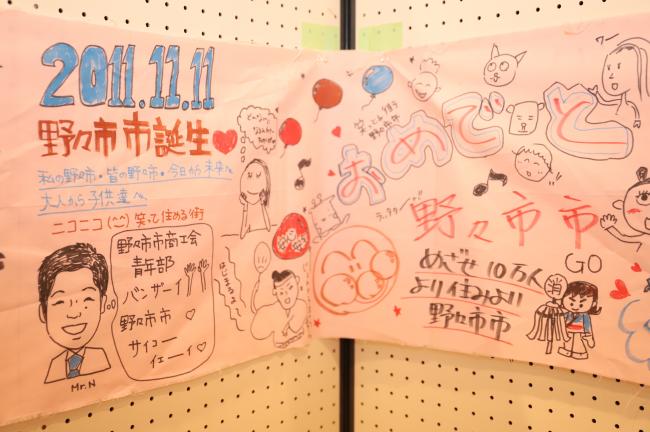 2011.11.11
野々市市誕生
私の野々市・皆の野々市・今日から未来へ
大人から子供達へ
ニコニコ(^^)笑って住める街
野々市市商工会
青年部
バンザーイ
野々市市
サイコー
イェーイ
Mr.N
おめでとう
ワー
野々市市
めざせ10万人
より住みよい
野々市市
GO